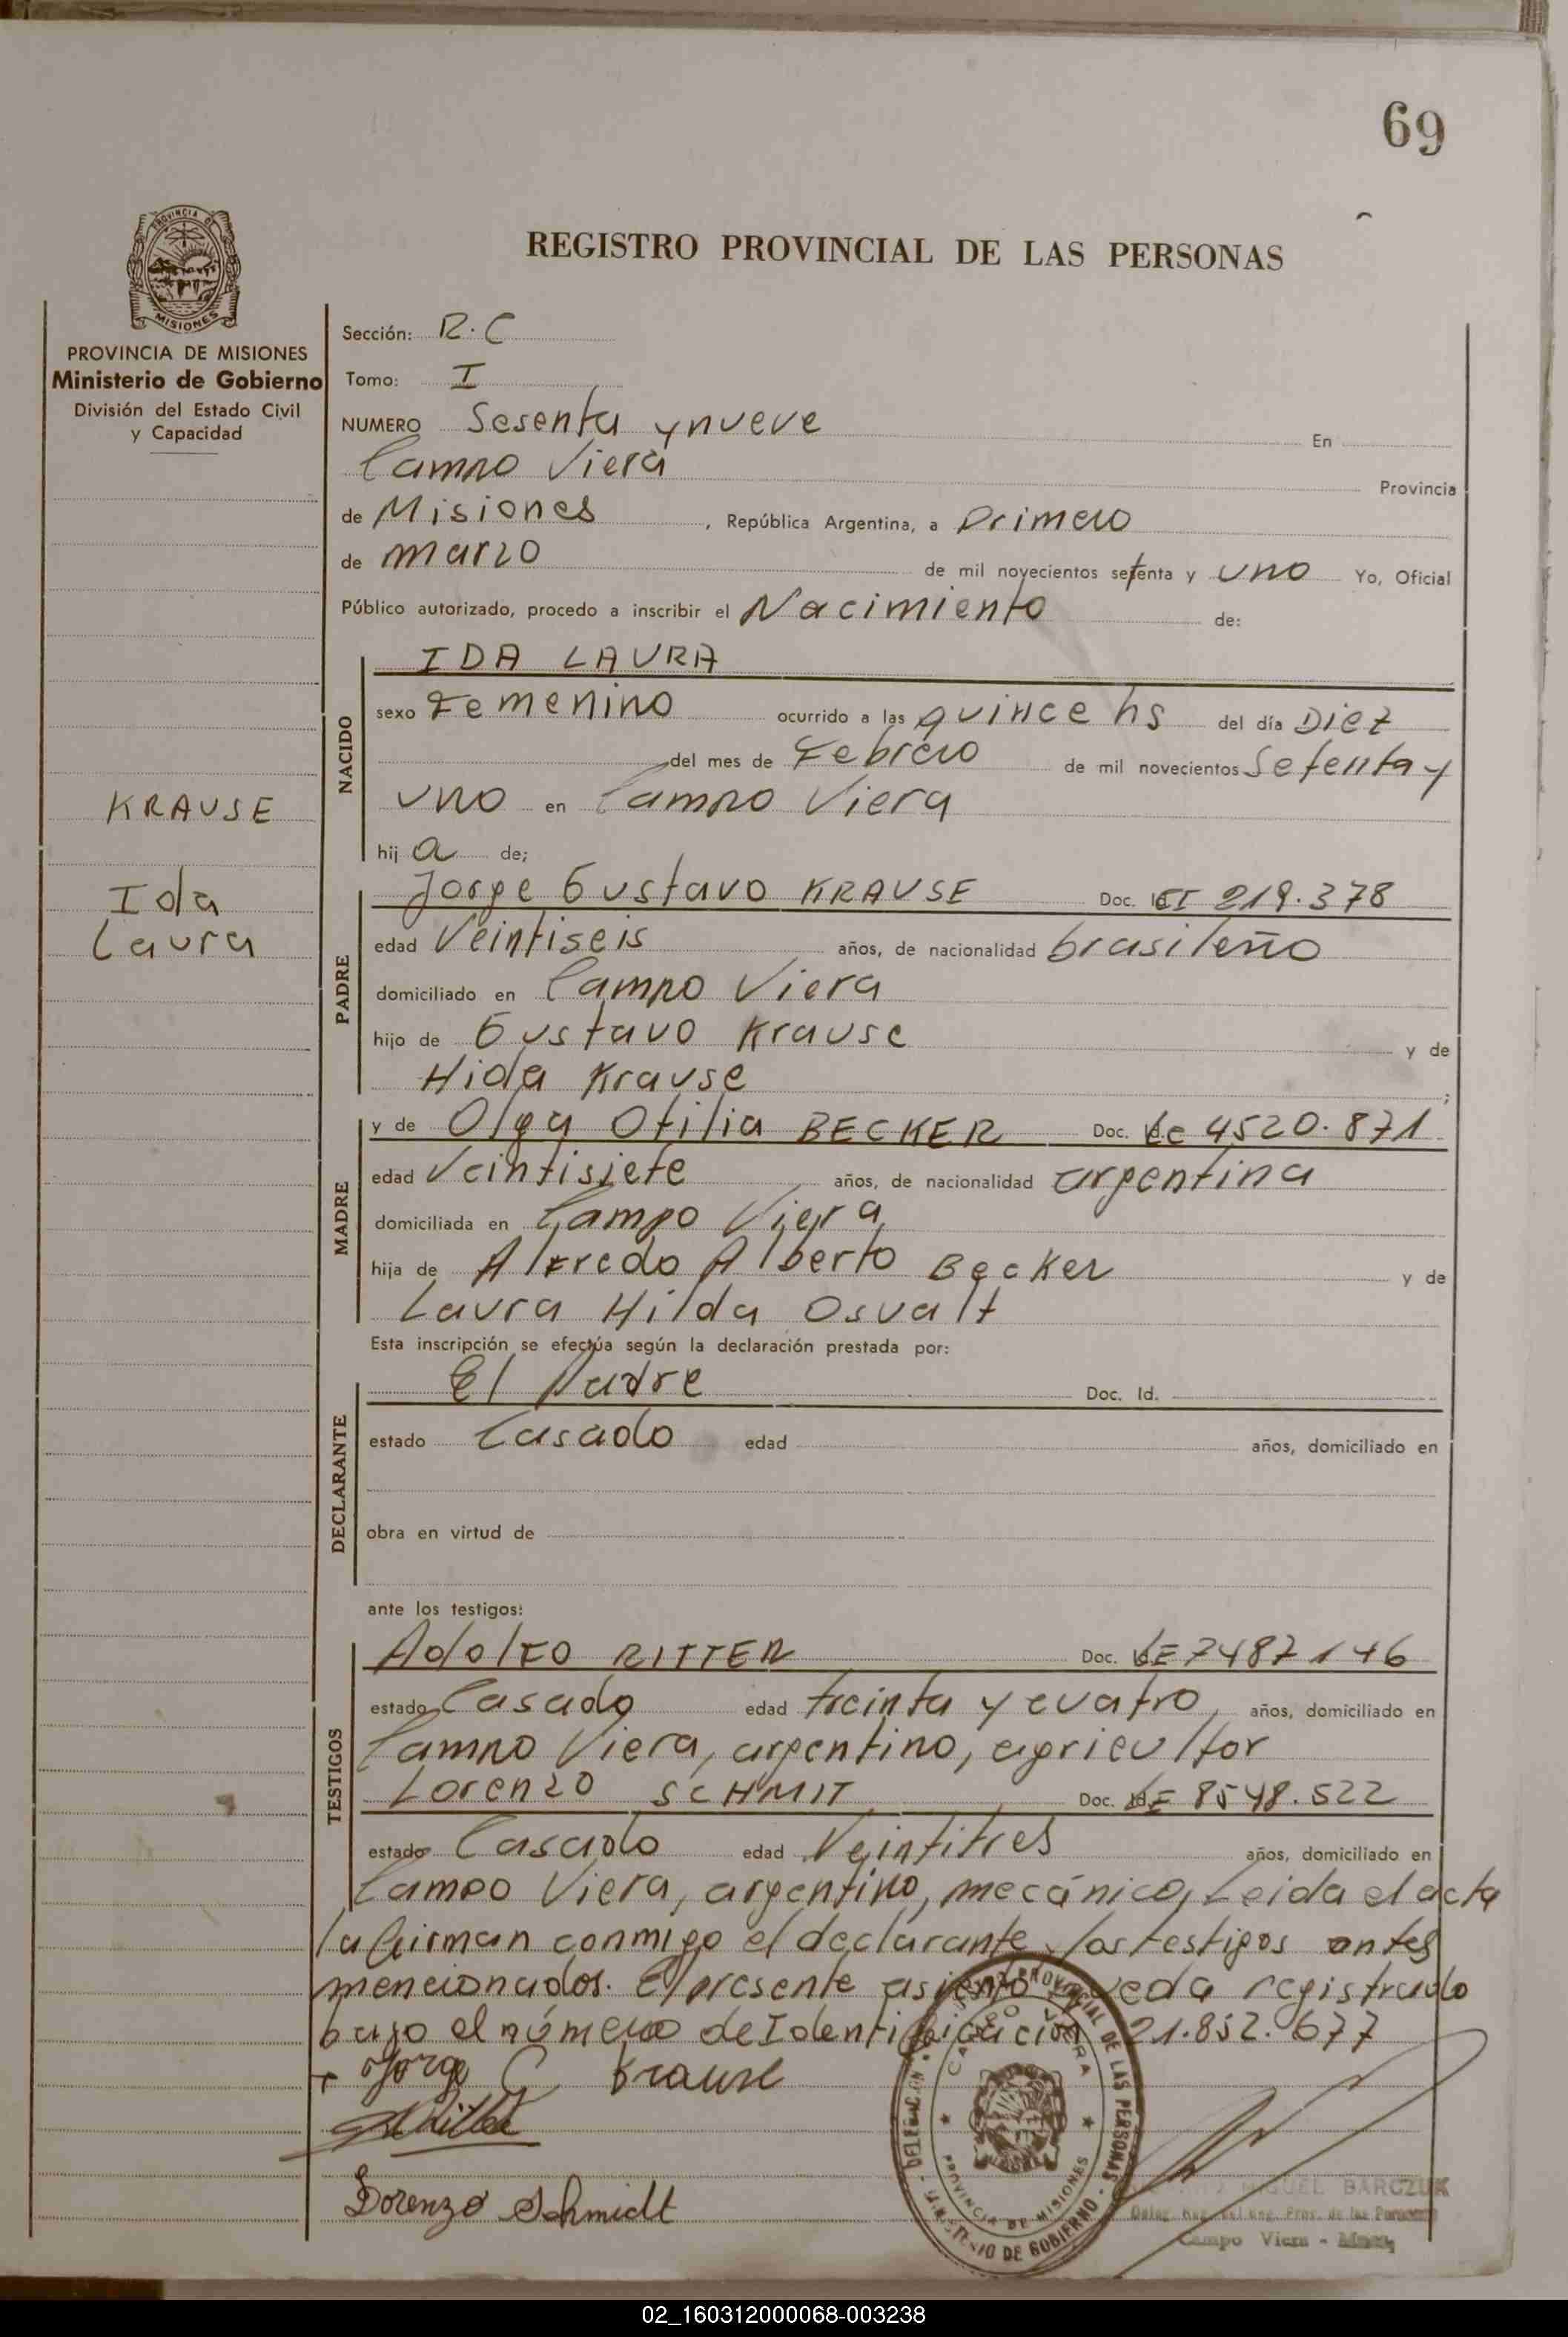 69
REGISTRO PROVINCIAL DE LAS PERSONAS
PROVINCIA DE MISIONES
PROVINCIA DE MISIONES
Ministerio de Gobierno
División del Estado Civil
y Capacidad
KRAUSE
Ida
Laura
Sección: R.C
Tomo: I
NUMERO Sesenta y nueve En
Campo Viera Provincia
de Misiones, República Argentina, a primero
de marzo de mil novecientos setenta y uno Yo, Oficial
Público autorizado, procedo a inscribir el Nacimiento de:
NACIDO
IDA LAURA
sexo Femenino ocurrido a las quince hs del día Diez
del mes de Febrero de mil novecientos Setenta y
uno en Campo Viera
hij a de;
PADRE
Jorge Gustavo KRAUSE Doc. CI 219.378
edad Veintiseis años, de nacionalidad brasileño
domiciliado en Campo Viera
hijo de Gustavo Krause y de
Hida Krause ;
MADRE
y de Olga Otilia BECKER Doc. Lc 4520.871
edad Veintisiete años, de nacionalidad argentina
domiciliada en Campo Viera
hija de Alfredo Alberto Becker y de
Laura Hilda Osvalt
Esta inscripción se efectúa según la declaración prestada por:
DECLARANTE
El padre Doc. Id.
estado Casado edad años, domiciliado en
obra en virtud de
ante los testigos:
TESTIGOS
Adolfo RITTER Doc. LE 7487146
estado Casado edad treinta y cuatro, años, domiciliado en
Campo Viera, argentino, agricultor
Lorenzo SCHMIT Doc. LE 8548.522
estado Casado edad Veintitres años, domiciliado en
Campo Viera, argentino, mecánico, Leida el acta
la firman conmigo el declarante y los testigos antes
mencionados. El presente asiento queda registrado
bajo el número de Identificación 21.852.677
Jorge G Krause
Lorenzo Schmidt
MINISTERIO DE GOBIERNO - DELEGACION
PROVINCIAL DE LAS PERSONAS
CAMPO VIERA
PROVINCIA DE MISIONES
MIGUEL BARCZUK
Deleg. Reg. del Reg. Prov. de las Personas
Campo Viera - Mnes.
02_160312000068-003238